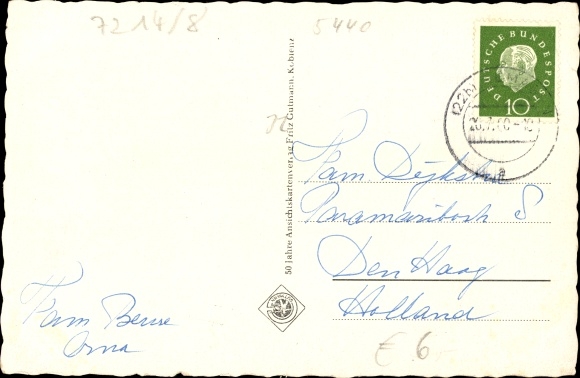 7214/8
5440
DEUTSCHE BUNDESPOST
10
26.7.60-18
50 Jahre Ansichtskartenverlag Fritz Gutmann, Koblenz
Fam Dijkstra
Paramaribostr 8
Den Haag
Holland
Fam Beure
Oma
€ 6